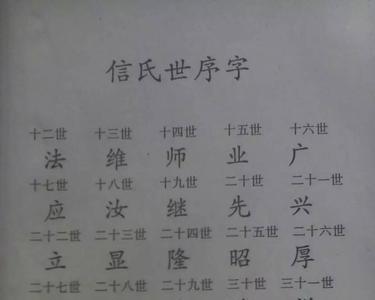 信氏世序字
十二世 十三世 十四世 十五世 十六世
法 维 师 业 广
十七世 十八世 十九世 二十世 二十一世
应 汝 继 先 兴
二十二世 二十三世 二十四世 二十五世 二十六世
立 显 隆 昭 厚
二十七世 二十八世 二十九世 三十世 三十一世